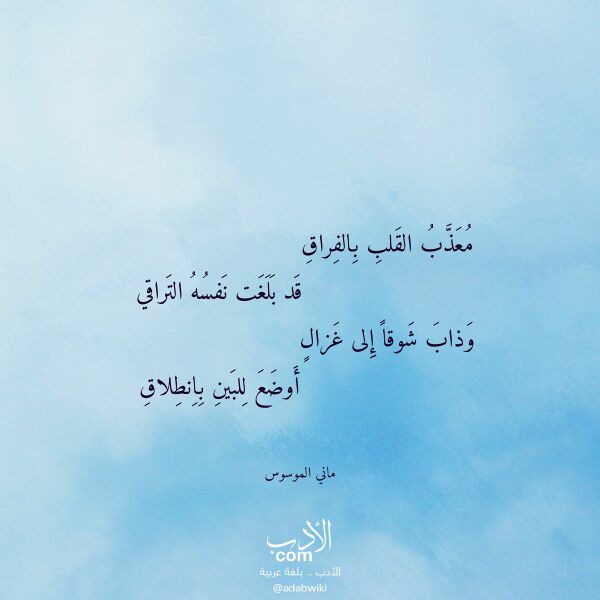 مُعَذَّبُ القَلبِ بِالفِراقِ
قَد بَلَغَت نَفسُهُ التَراقي
وَذابَ شَوقاً إِلى غَزالٍ
أَوضَعَ لِلبَينِ بِاِنطِلاقِ
ماني الموسوس
الأدب
com
الأدب .. بلغة عربية
@adabwiki